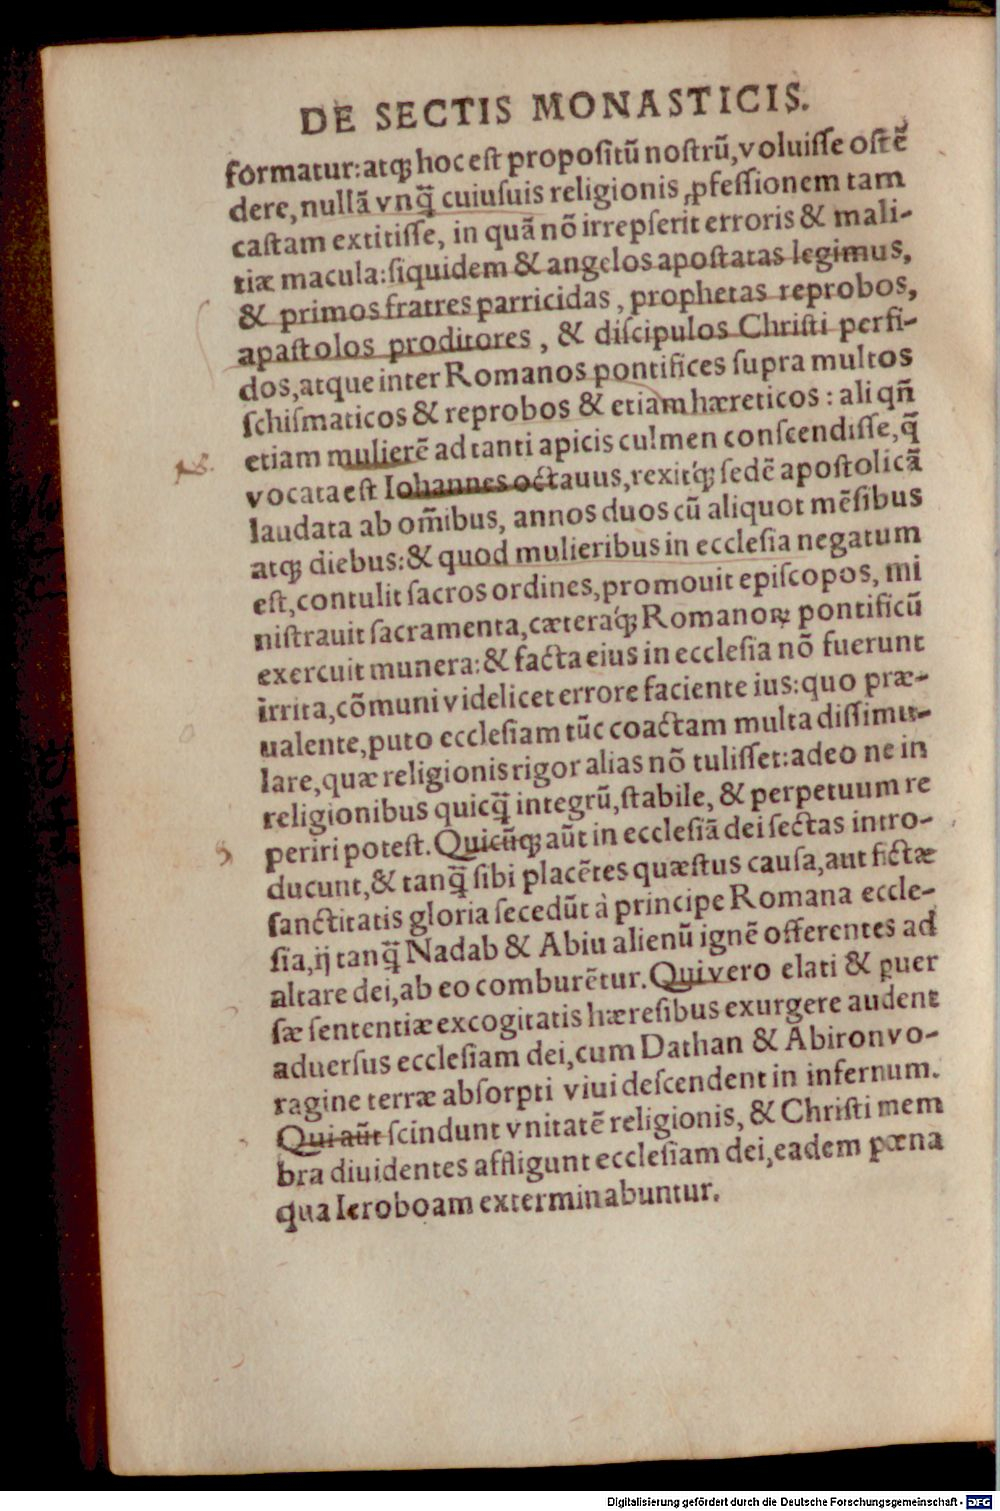 DE SECTIS MONASTICIS.
formatur:atqȝ hoc est propositū nostrū,voluisse ostē
dere,nullā vnq̄ cuiusuis religionis ꝓfessionem tam
castam extitisse, in quā nō irrepserit erroris & mali-
tiæ macula:siquidem & angelos apostatas legimus,
& primos fratres parricidas, prophetas reprobos,
apastolos proditores, & discipulos Christi perfi-
dos,atque inter Romanos pontifices supra multos
schismaticos & reprobos & etiam hæreticos : aliqñ
etiam mulierē ad tanti apicis culmen conscendisse,q̄
vocata est Iohannes octauus,rexitq́ȝ sedē apostolicā
laudata ab om̄ibus, annos duos cū aliquot mēsibus
atqȝ diebus:& quod mulieribus in ecclesia negatum
est,contulit sacros ordines,promouit episcopos, mi
nistrauit sacramenta,cæteraq́ȝ Romanoꝝ pontificū
exercuit munera:& facta eius in ecclesia nō fuerunt
irrita,cōmuni videlicet errore faciente ius:quo præ-
ualente,puto ecclesiam tūc coactam multa dissimu-
lare,quæ religionis rigor alias nō tulisset:adeo ne in
religionibus quicq̄ integrū,stabile, & perpetuum re
periri potest. Quicūqȝ aūt in ecclesiā dei sectas intro-
ducunt,& tanq̄ sibi placētes quæstus causa,aut fictæ
sanctitatis gloria secedūt à principe Romana eccle-
sia,ij tanq̄ Nadab & Abiu alienū ignē offerentes ad
altare dei,ab eo comburētur. Qui vero elati & puer
sæ sententiæ excogitatis hæresibus exurgere audent
aduersus ecclesiam dei,cum Dathan & Abiron vo-
ragine terræ absorpti viui descendent in infernum.
Qui aūt scindunt vnitatē religionis, & Christi mem
bra diuidentes affligunt ecclesiam dei,eadem pœna
qua Ieroboam exterminabuntur.
Digitalisierung gefördert durch die Deutsche Forschungsgemeinschaft - DFG